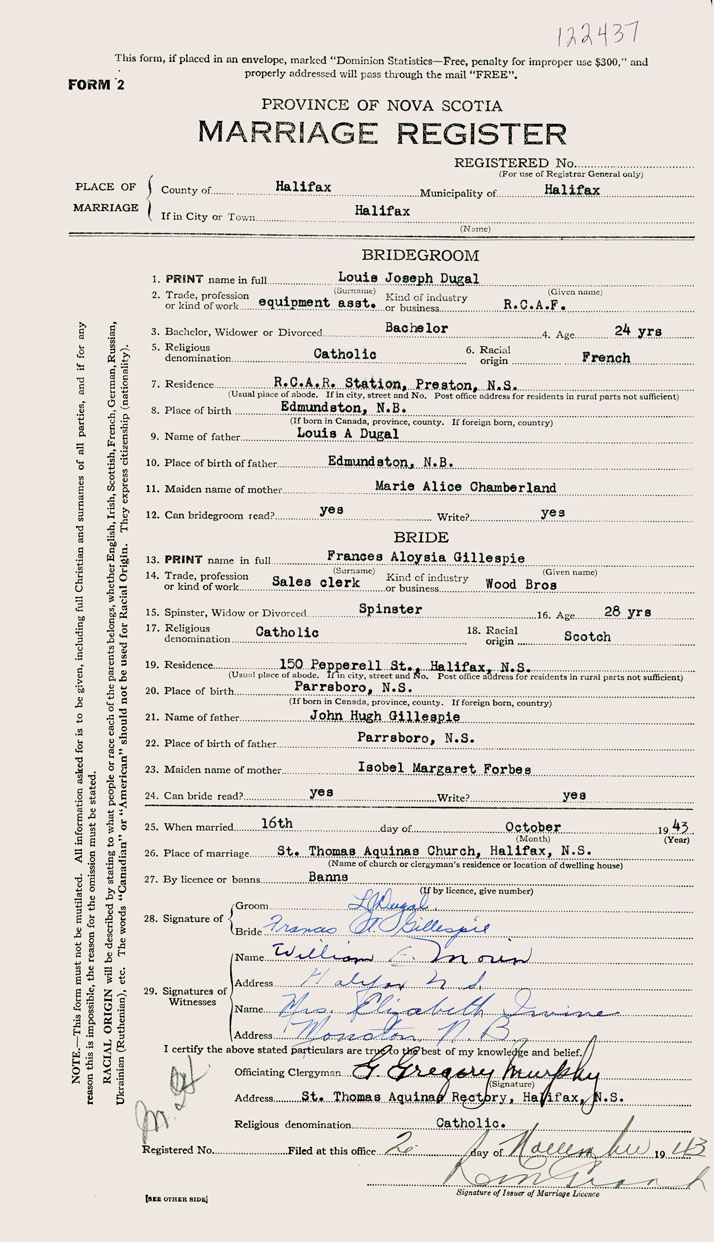 122437
This form, if placed in an envelope, marked "Dominion Statistics—Free, penalty for improper use $300," and
properly addressed will pass through the mail "FREE".
FORM 2
PROVINCE OF NOVA SCOTIA
MARRIAGE REGISTER
REGISTERED No.
(For use of Registrar General only)
PLACE OF MARRIAGE
County of Halifax Municipality of Halifax
If in City or Town Halifax
(Name)
BRIDEGROOM
1. PRINT name in full Louis Joseph Dugal
(Surname) (Given name)
2. Trade, profession or kind of work equipment asst. Kind of industry or business R.C.A.F.
3. Bachelor, Widower or Divorced Bachelor 4. Age 24 yrs
5. Religious denomination Catholic 6. Racial origin French
7. Residence R.C.A.R. Station, Preston, N.S.
(Usual place of abode. If in city, street and No. Post office address for residents in rural parts not sufficient)
8. Place of birth Edmundston, N.B.
(If born in Canada, province, county. If foreign born, country)
9. Name of father Louis A Dugal
10. Place of birth of father Edmundston, N.B.
11. Maiden name of mother Marie Alice Chamberland
12. Can bridegroom read? yes Write? yes
BRIDE
13. PRINT name in full Frances Aloysia Gillespie
(Surname) (Given name)
14. Trade, profession or kind of work Sales clerk Kind of industry or business Wood Bros
15. Spinster, Widow or Divorced Spinster 16. Age 28 yrs
17. Religious denomination Catholic 18. Racial origin Scotch
19. Residence 150 Pepperell St., Halifax, N.S.
(Usual place of abode. If in city, street and No. Post office address for residents in rural parts not sufficient)
20. Place of birth Parrsboro, N.S.
(If born in Canada, province, county. If foreign born, country)
21. Name of father John Hugh Gillespie
22. Place of birth of father Parrsboro, N.S.
23. Maiden name of mother Isobel Margaret Forbes
24. Can bride read? yes Write? yes
25. When married 16th day of October 1943
(Month) (Year)
26. Place of marriage St. Thomas Aquinas Church, Halifax, N.S.
(Name of church or clergyman's residence or location of dwelling house)
27. By licence or banns Banns
(If by licence, give number)
28. Signature of
Groom L J Dugal
Bride Frances A. Gillespie
29. Signatures of Witnesses
Name William E. Morin
Address Halifax N.S.
Name Mrs. Elizabeth Irvine
Address Moncton N.B.
I certify the above stated particulars are true to the best of my knowledge and belief.
Officiating Clergyman G. Gregory Murphy
(Signature)
Address St. Thomas Aquinas Rectory, Halifax, N.S.
Religious denomination Catholic.
Registered No. Filed at this office 2 day of November 1943
Signature of Issuer of Marriage Licence
[SEE OTHER SIDE]
NOTE.—This form must not be mutilated. All information asked for is to be given, including full Christian and surnames of all parties, and if for any
reason this is impossible, the reason for the omission must be stated.
RACIAL ORIGIN will be described by stating to what people or race each of the parents belongs, whether English, Irish, Scottish, French, German, Russian,
Ukrainian (Ruthenian), etc. The words "Canadian" or "American" should not be used for Racial Origin. They express citizenship (nationality).